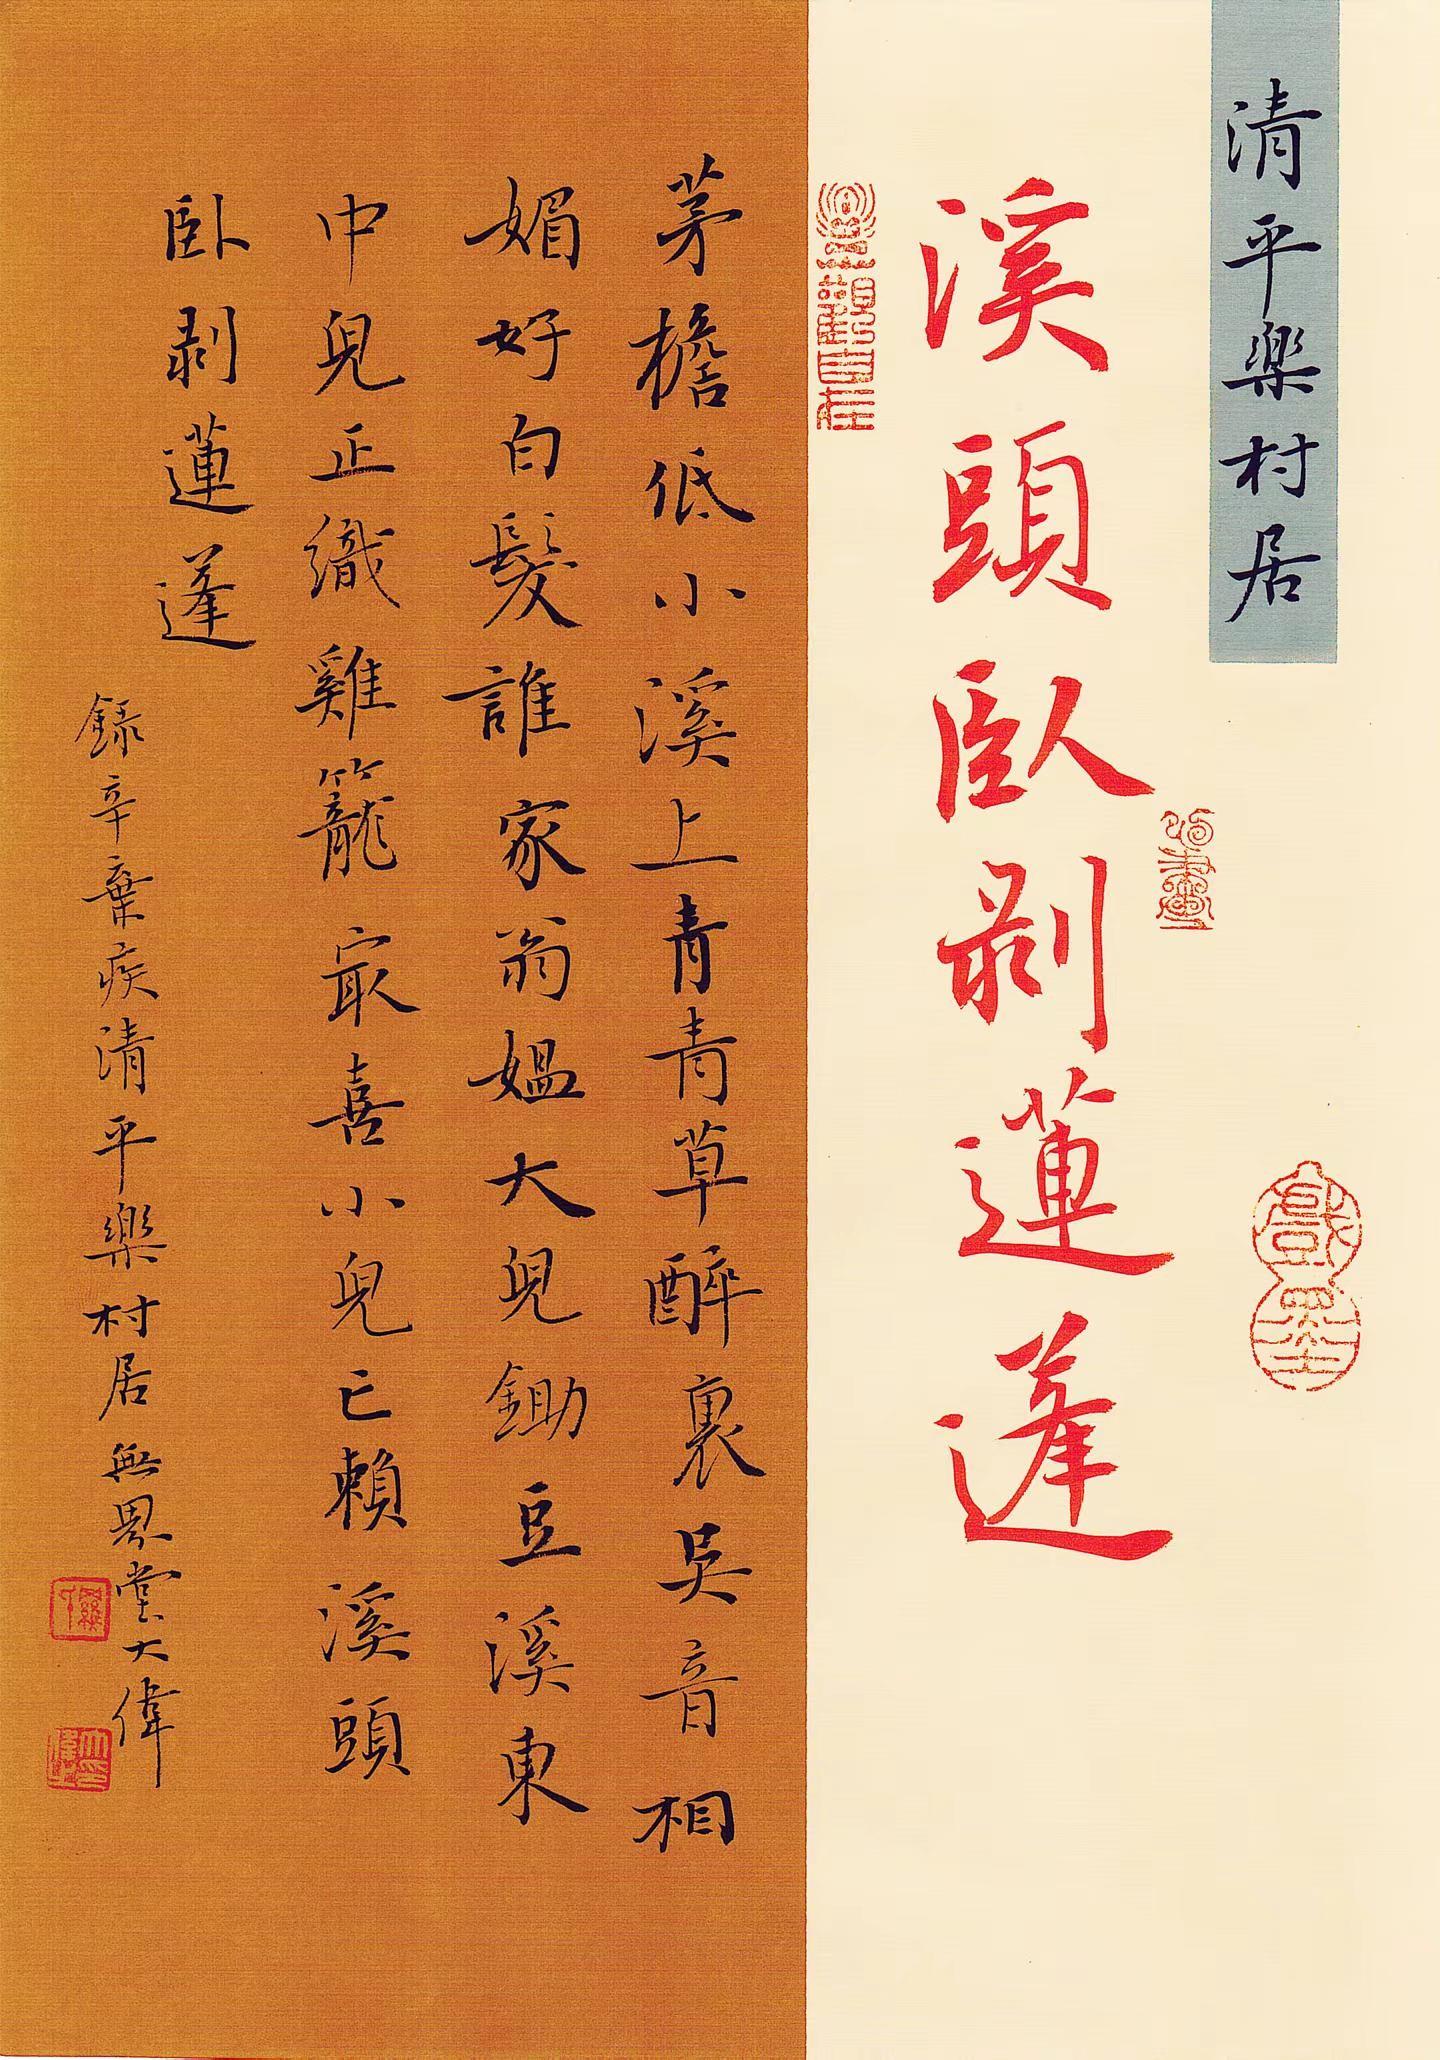 清平樂村居
溪頭臥剥蓮蓬
戲墨
茅檐低小溪上青青草醉裏吴音相
媚好白髮誰家翁媪大兒鋤豆溪東
中兒正織雞籠冣喜小兒亡賴溪頭
卧剥蓮蓬
録辛棄疾清平樂村居無堂大偉